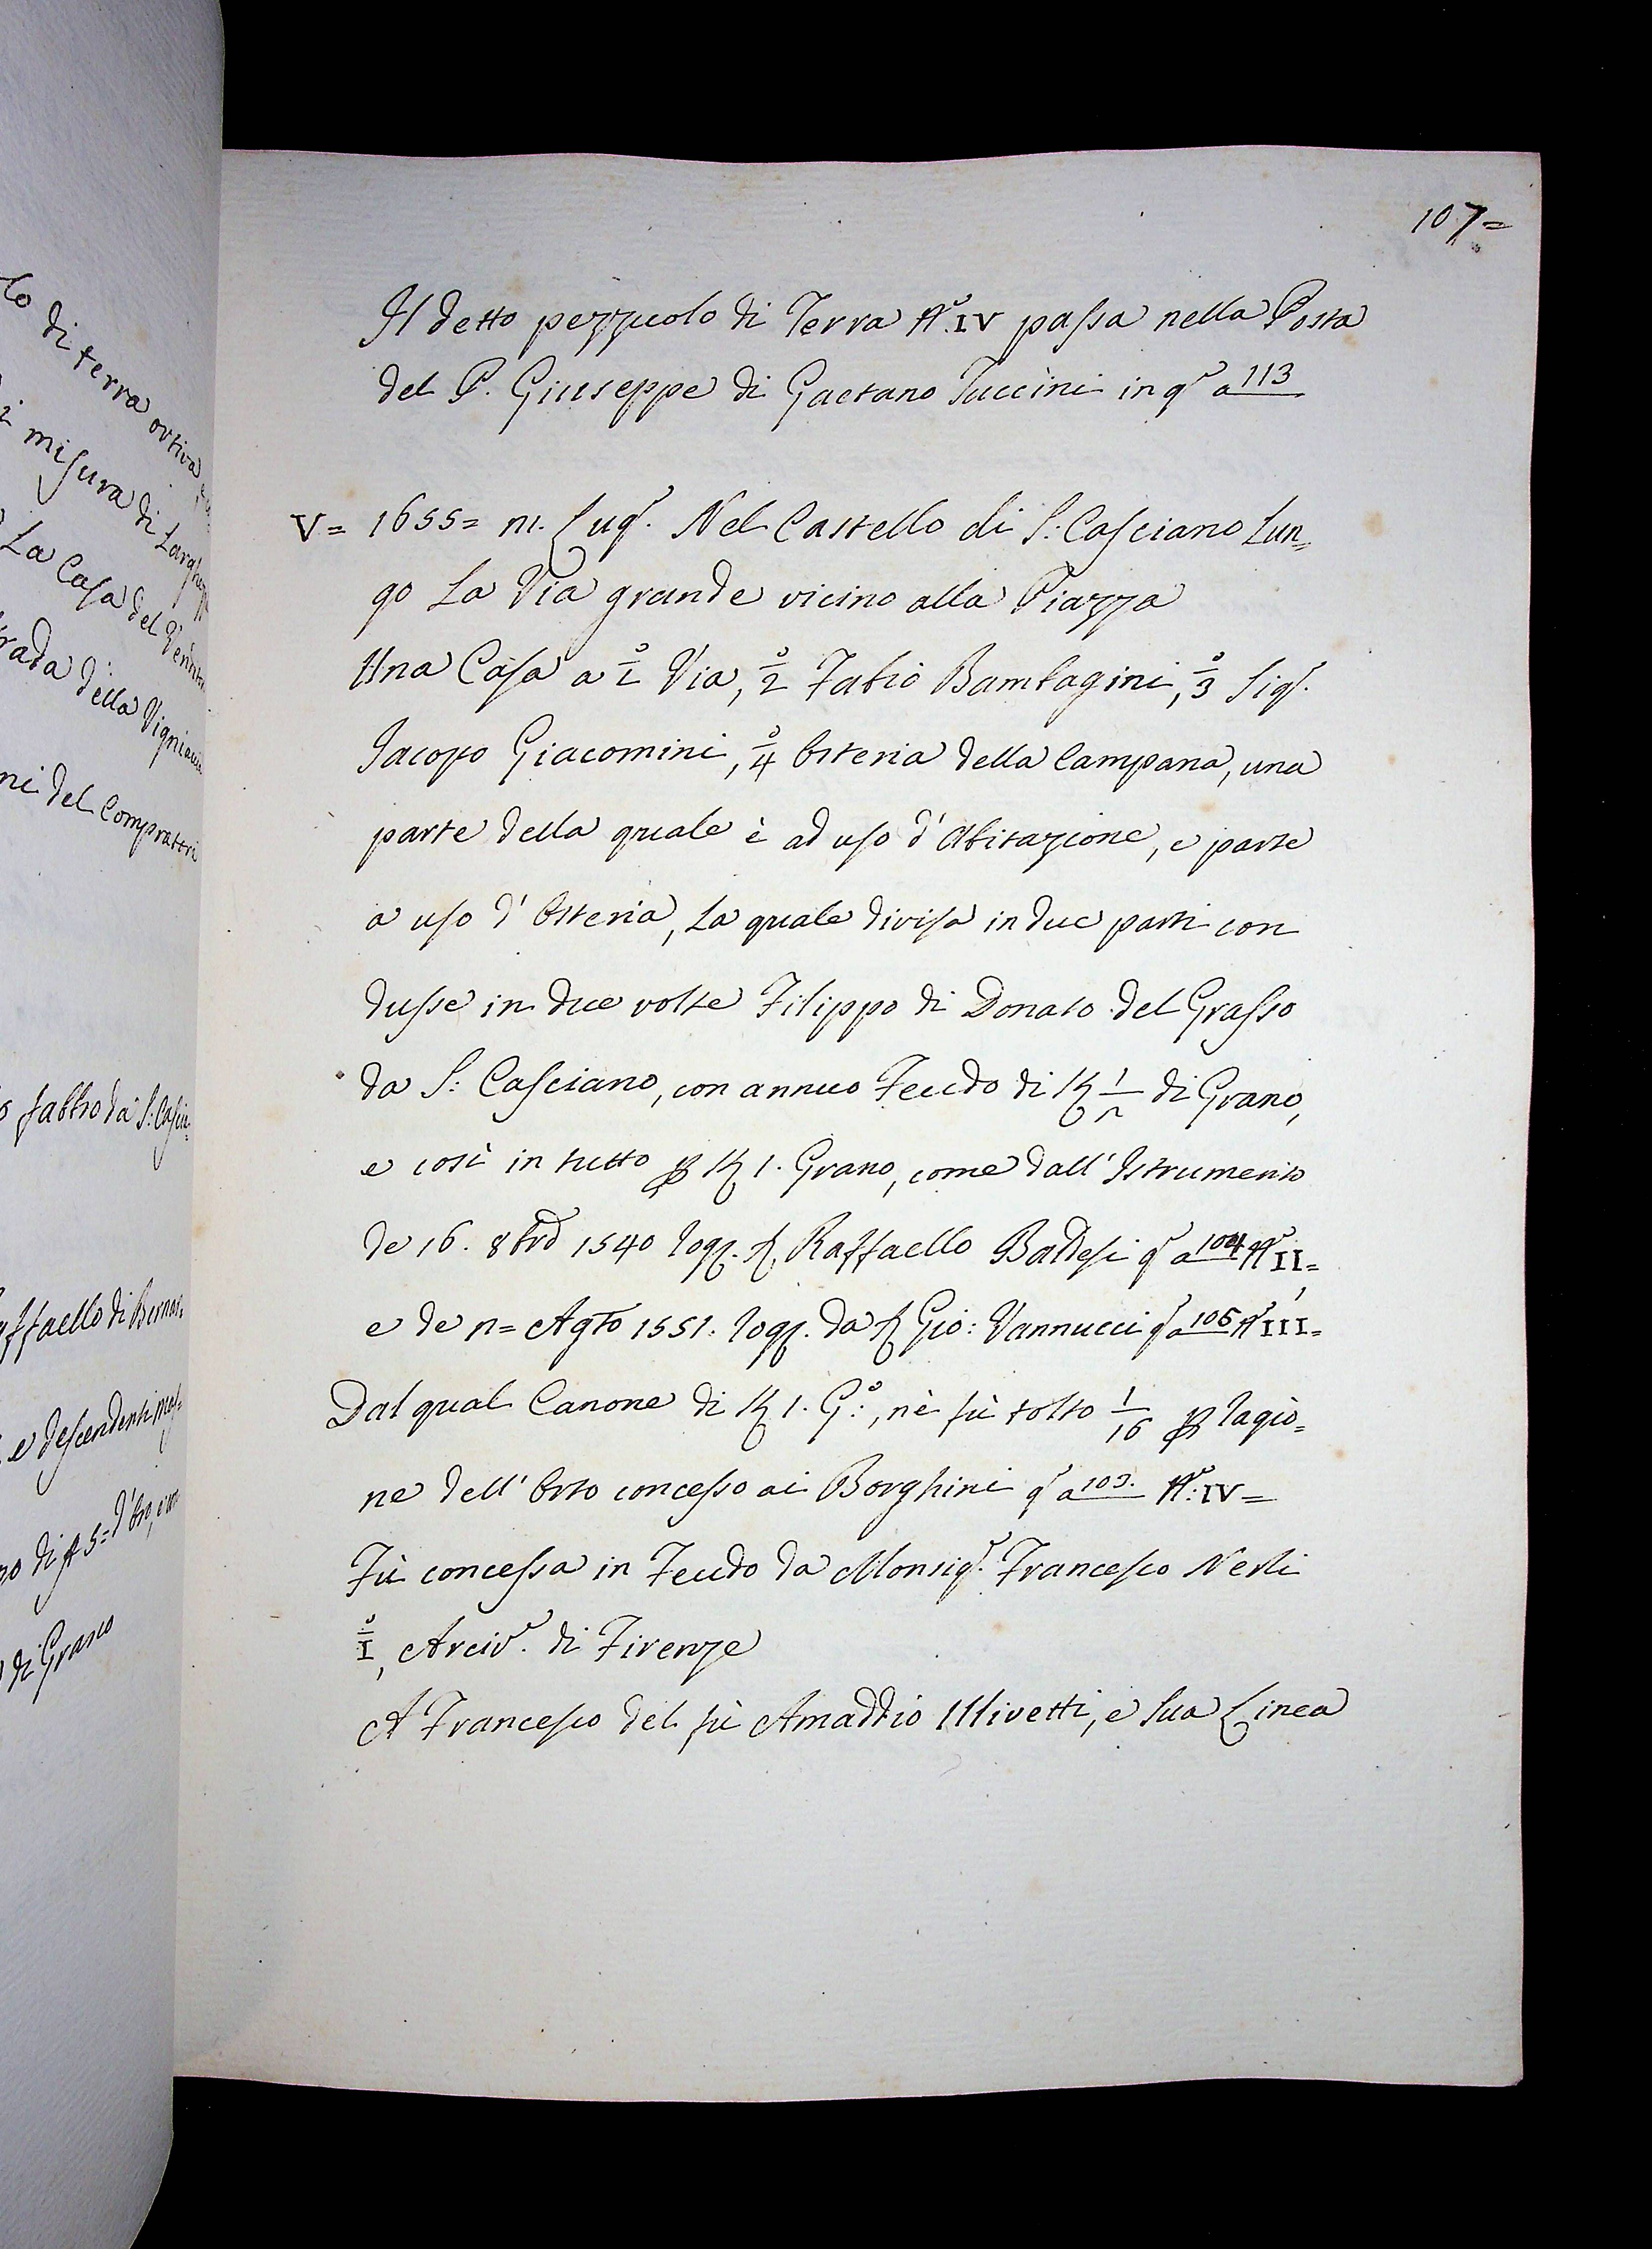 lo di terra ortiva
misura di Largh
La Casa del Vendit
rada della Vigniaccia
ni del Compratori
fabbro da S: Casci-
affaello di Berna
e descendenti mas
di Grano
107=
Il detto pezzuolo di Terra N.º IV passa nella Posta
del P. Giuseppe di Gaetano Tuccini in qº a 113
V= 1655= Lugº. Nel Castello di S. Casciano Lun=
go La Via grande vicino alla Piazza
Una Casa a 1º Via, 2º Fabio Bambagini, 3º Sigº.
Jacopo Giacomini, 4º Osteria della Campana, una
parte della quale è ad uso d'Abitazione, e parte
a uso d'Osteria, La quale divisa in due parti con
dusse in due volte Filippo di Donato del Grasso
da S: Casciano, con annuo Feudo di di Grano,
e così in tutto 1. Grano, come dall'Istrumento
de 16. 8bre 1540 Rog. Raffaello Baldesi qº a 104 Nº II=
e de n= Agto 1551. Rog. da Gio: Vannucci qº a 105 Nº III=
Dal qual Canone di 1. Gº:, nè fù tolto 1/16 ragio=
ne dell'Orto concesso ai Borghini qº a 103. Nº: IV=
Fù concessa in Feudo da Monsigº. Francesco Nerli
Iº, Arcivº. di Firenze
A Francesco del fù Amaddio Ulivetti, e Sua Linea